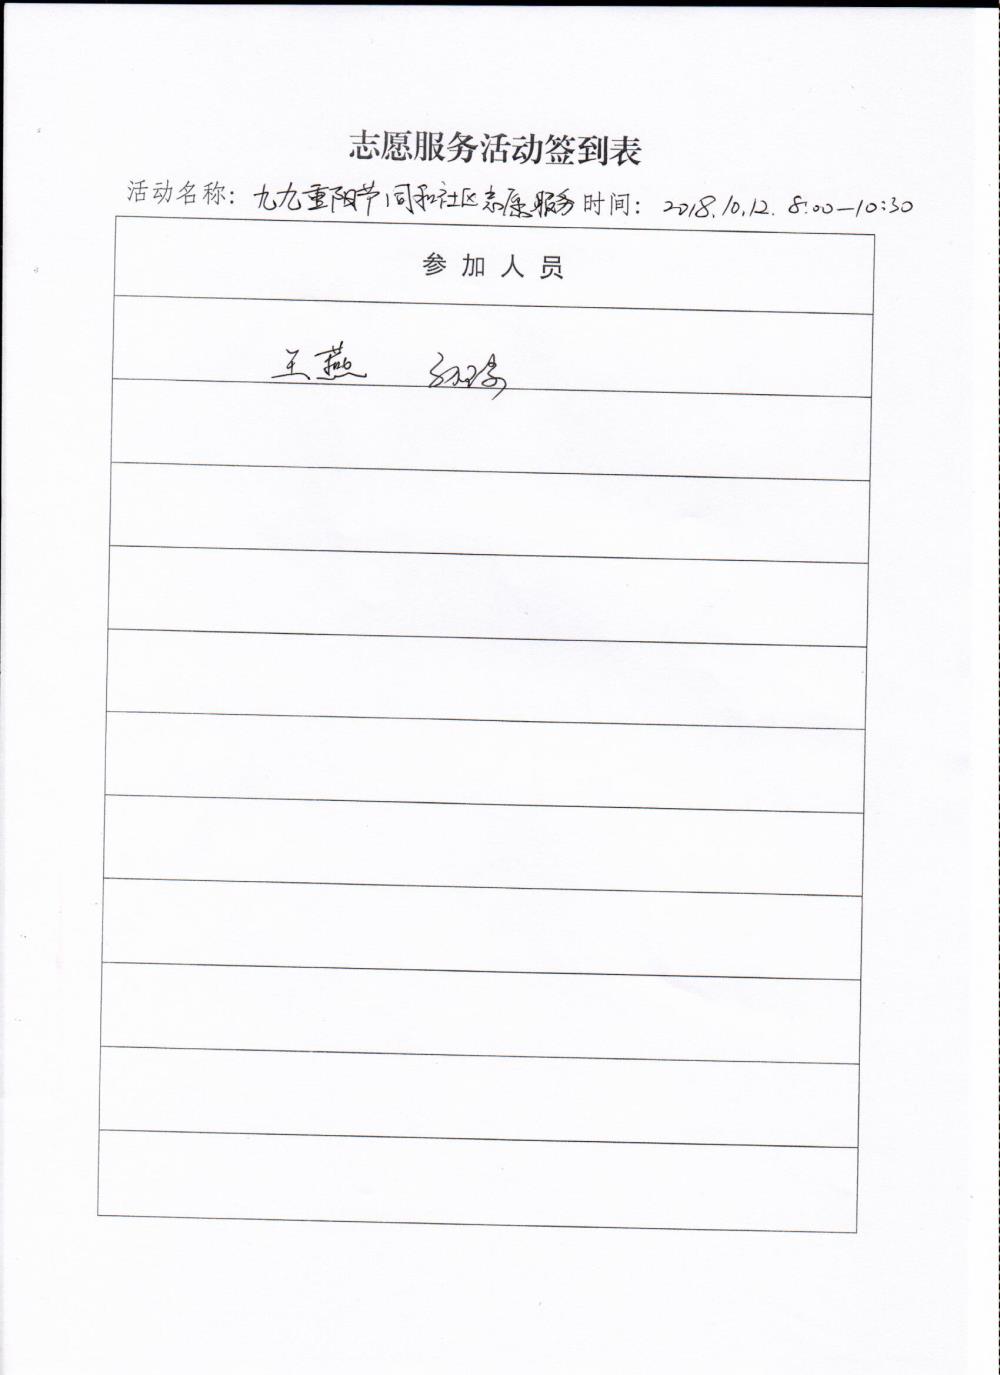 志愿服务活动签到表
活动名称：九九重阳节同和社区志愿服务 时间：2018.10.12. 8:00—10:30
参加人员
王燕